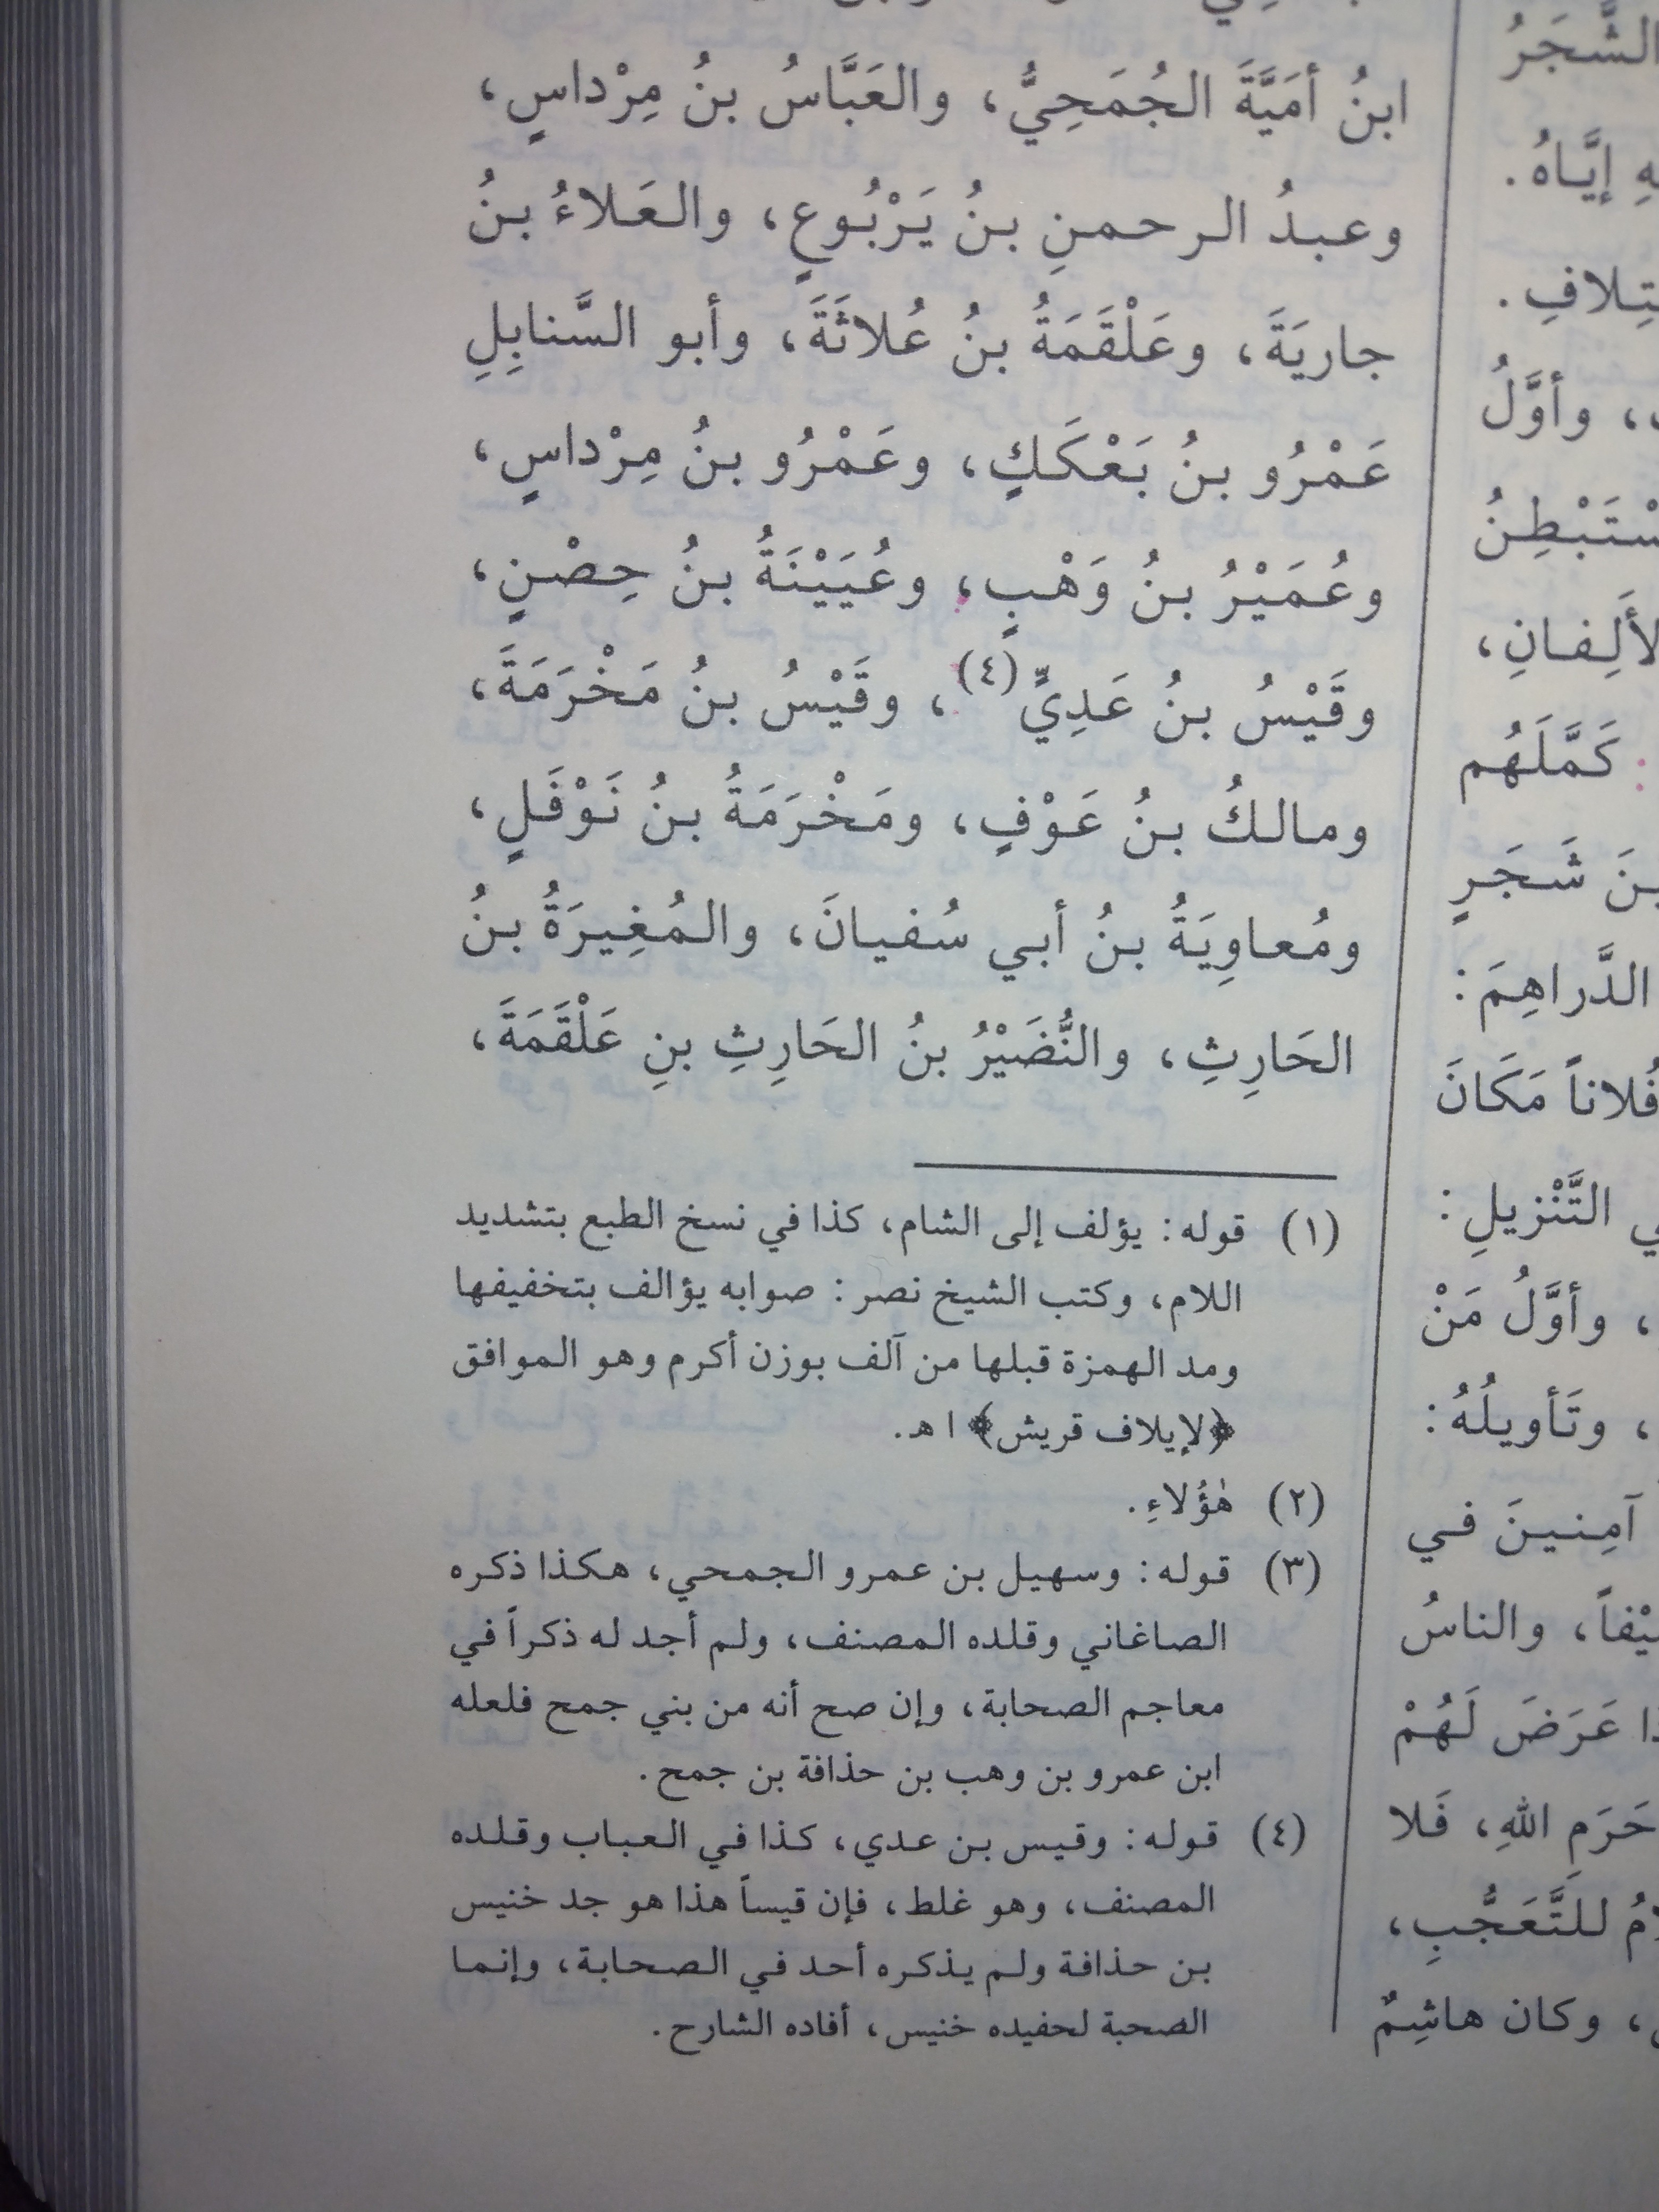 الشَّجَرُ
إيَّاهُ.
وأوَّلُ
كَمَّلَهُم
شَجَرٍ
الدَّراهِمَ:
فُلاناً مَكَانَ
التَّنْزيلِ:
، وأوَّلُ مَنْ
، وتَأويلُهُ:
آمِنينَ في
والناسُ
عَرَضَ لَهُمْ
حَرَمِ اللهِ، فَلا
للتَّعَجُّبِ،
، وكان هاشِمٌ
ابنُ أمَيَّةَ الجُمَحِيُّ، والعَبَّاسُ بنُ مِرْداسٍ،
وعبدُ الرحمنِ بنُ يَرْبُوعٍ، والعَلاءُ بنُ
جاريَةَ، وعَلْقَمَةُ بنُ عُلاثَةَ، وأبو السَّنابِلِ
عَمْرُو بنُ بَعْكَكٍ، وعَمْرُو بنُ مِرْداسٍ،
وعُمَيْرُ بنُ وَهْبٍ، وعُيَيْنَةُ بنُ حِصْنٍ،
وقَيْسُ بنُ عَدِيٍّ(٤)، وقَيْسُ بنُ مَخْرَمَةَ،
ومالكُ بنُ عَوْفٍ، ومَخْرَمَةُ بنُ نَوْفَلٍ،
ومُعاوِيَةُ بنُ أبي سُفيانَ، والمُغِيرَةُ بنُ
الحَارِثِ، والنُّضَيْرُ بنُ الحَارِثِ بنِ عَلْقَمَةَ،
(١) قوله: يؤلف إلى الشام، كذا في نسخ الطبع بتشديد
اللام، وكتب الشيخ نصر: صوابه يؤالف بتخفيفها
ومد الهمزة قبلها من آلف بوزن أكرم وهو الموافق
﴿لإيلاف قريش﴾ ا هـ.
(٢) هٰؤُلاءِ.
(٣) قوله: وسهيل بن عمرو الجمحي، هكذا ذكره
الصاغاني وقلده المصنف، ولم أجد له ذكراً في
معاجم الصحابة، وإن صح أنه من بني جمح فلعله
ابن عمرو بن وهب بن حذافة بن جمح.
(٤) قوله: وقيس بن عدي، كذا في العباب وقلده
المصنف، وهو غلط، فإن قيساً هذا هو جد خنيس
بن حذافة ولم يذكره أحد في الصحابة، وإنما
الصحبة لحفيده خنيس، أفاده الشارح.